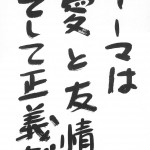 ーマは
愛と友情
そして正義